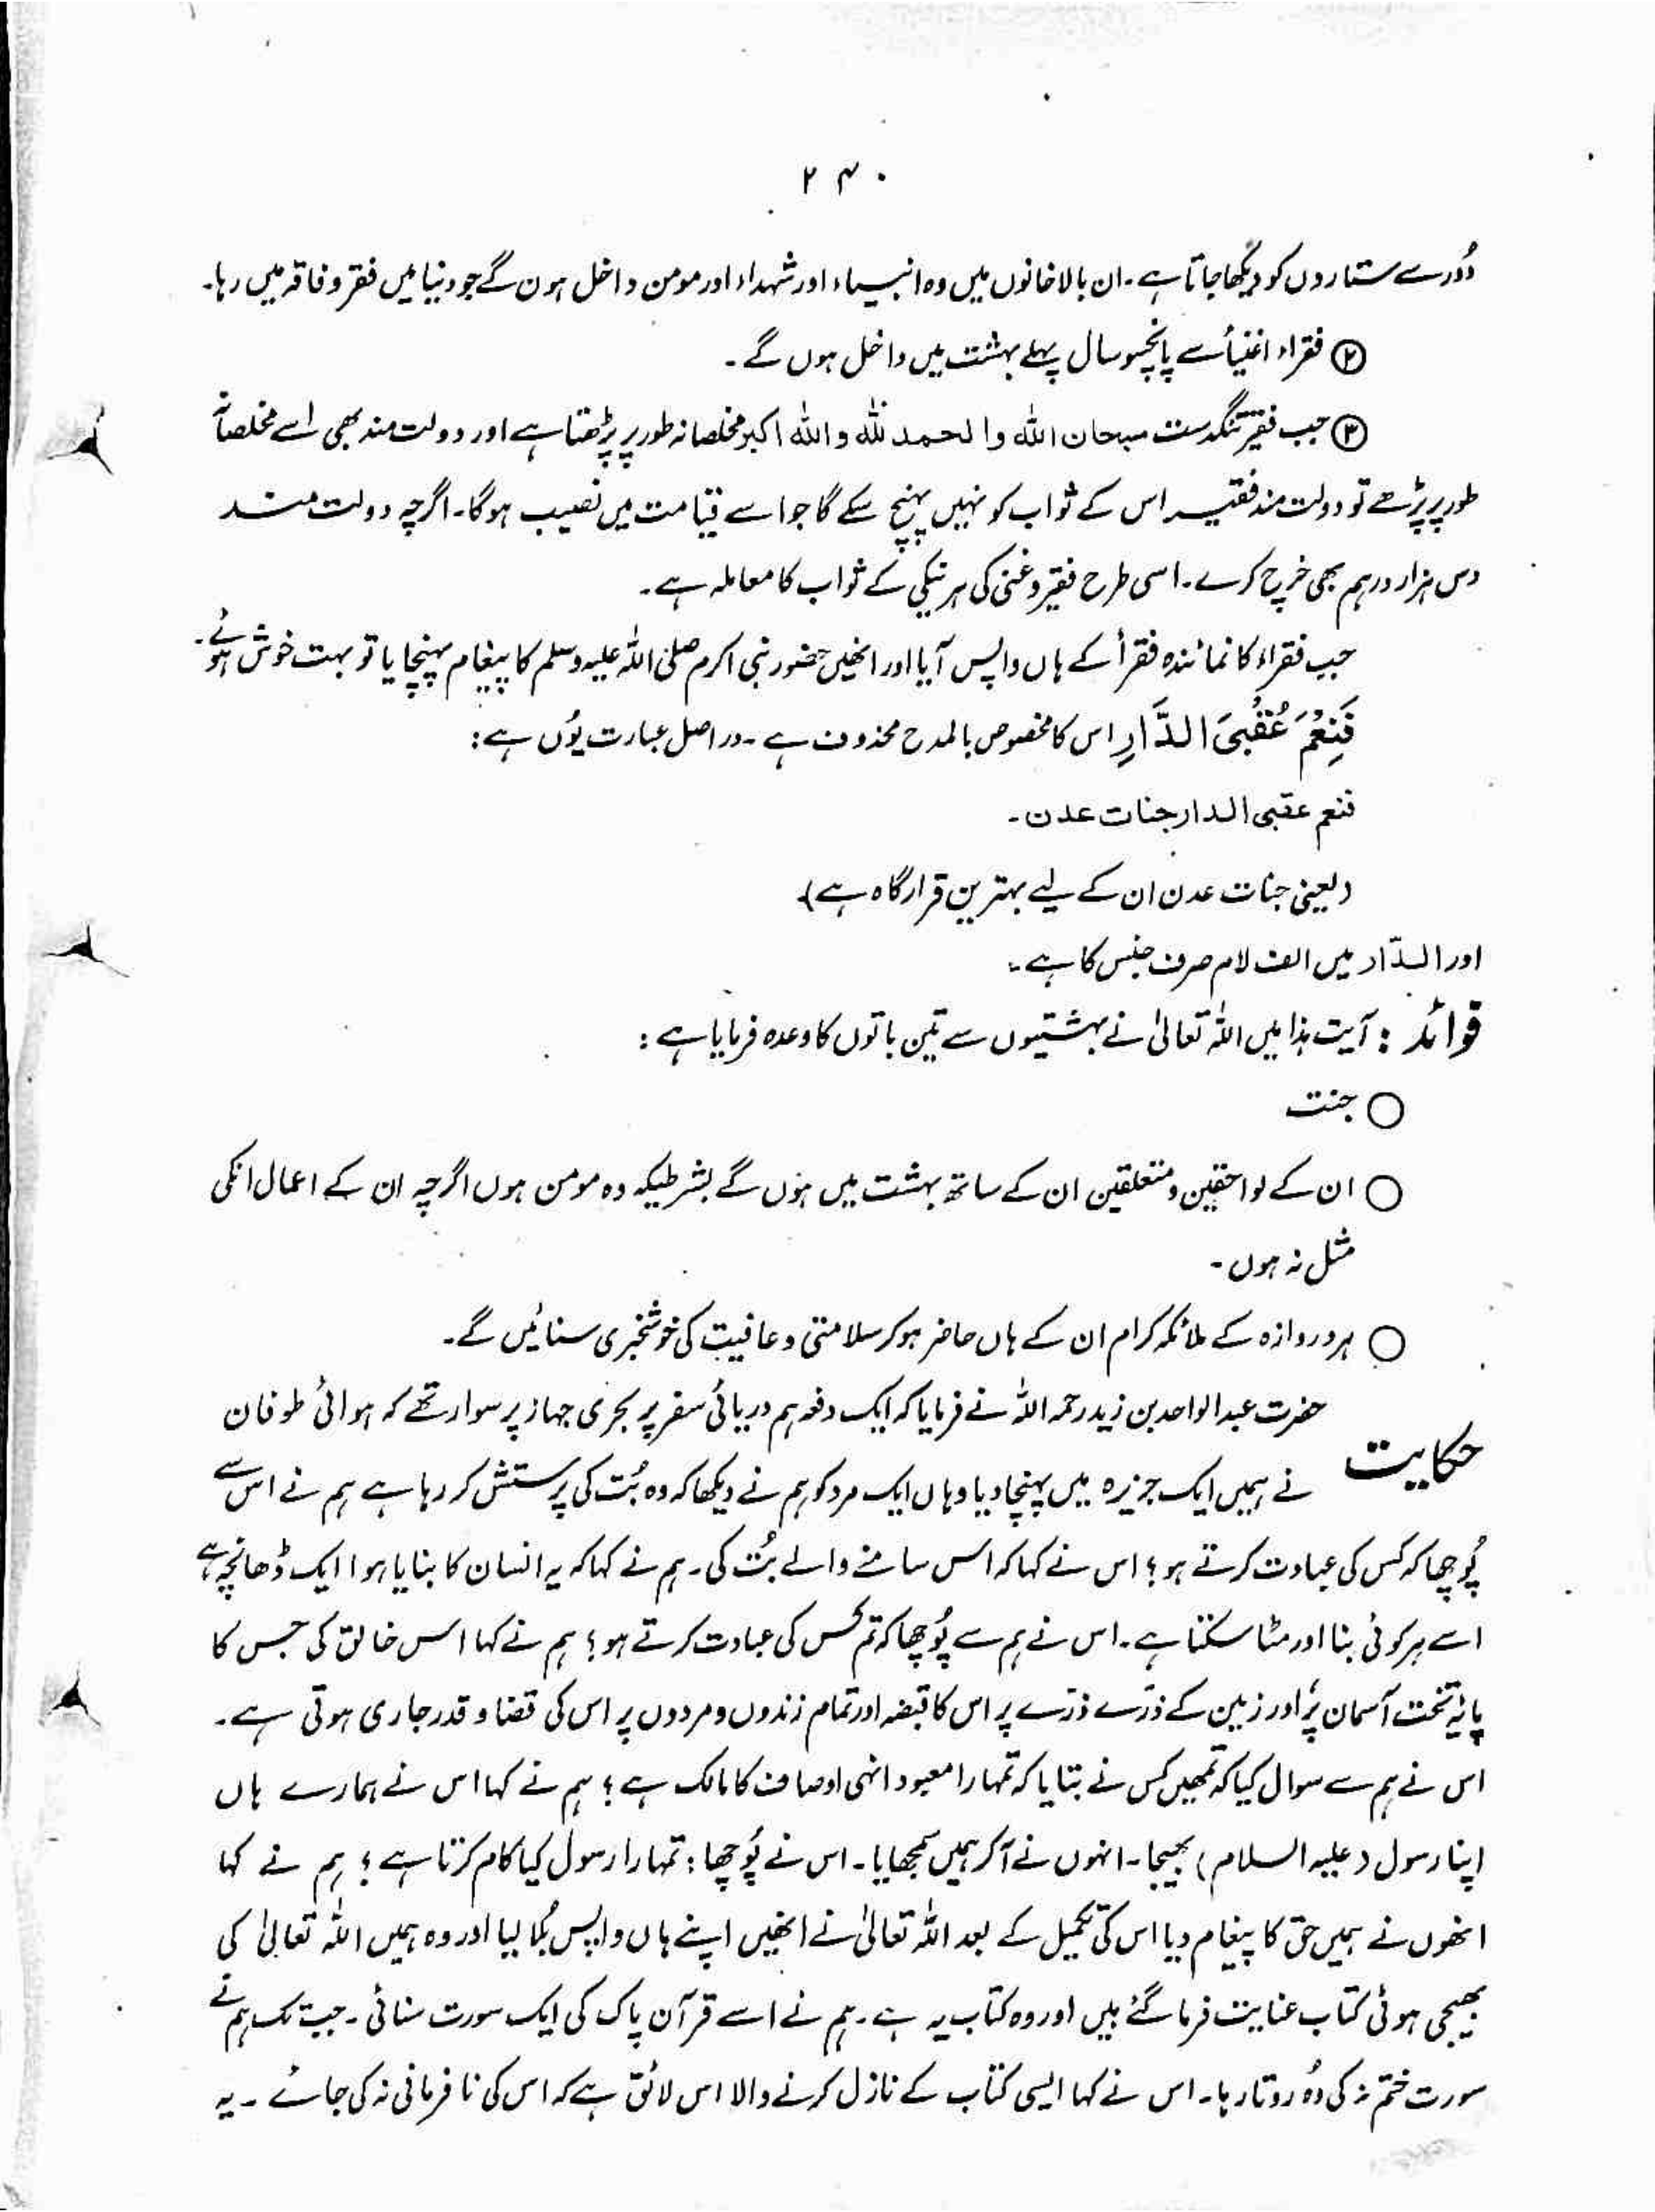 ۲۴۰
دُور سے ستاروں کو دیکھا جاتا ہے۔ ان بالاخانوں میں وہ انبیاء اور شہداء اور مومن داخل ہوں گے جو دنیا میں فقر و فاقہ میں رہا۔
② فقراء اغنیأ سے پانچسو سال پہلے بہشت میں داخل ہوں گے۔
③ جب فقیر تنگدست سبحان اللہ والحمد للہ و اللہ اکبر مخلصانہ طور پر پڑھتا ہے اور دولت مند بھی اسے مخلصانہ
طور پر پڑھے تو دولت مند فقیر اس کے ثواب کو نہیں پہنچ سکے گا جو اسے قیامت میں نصیب ہوگا۔ اگرچہ دولت مند
دس ہزار درہم بھی خرچ کرے۔ اسی طرح فقیر و غنی کی ہر نیکی کے ثواب کا معاملہ ہے۔
جب فقراء کا نمائندہ فقرأ کے ہاں واپس آیا اور انھیں حضور نبی اکرم صلی اللہ علیہ وسلم کا پیغام پہنچایا تو بہت خوش ہوئے۔
فَنِعْمَ عُقْبَی الدَّارِ اس کا مخصوص بالمدح محذوف ہے۔ در اصل عبارت یُوں ہے :
فنعم عقبی الدار جنات عدن۔
(یعنی جنات عدن ان کے لیے بہترین قرار گاہ ہے)
اور الدّار میں الف لام صرف جنس کا ہے۔
فوائد : آیت ہذا میں اللہ تعالیٰ نے بہشتیوں سے تین باتوں کا وعدہ فرمایا ہے :
○ جنت
○ ان کے لواحقین و متعلقین ان کے ساتھ بہشت میں ہوں گے بشرطیکہ وہ مومن ہوں اگرچہ ان کے اعمال انکی
مثل نہ ہوں۔
○ ہر دروازہ کے ملائکہ کرام ان کے ہاں حاضر ہو کر سلامتی و عافیت کی خوشخبری سنائیں گے۔
حکایت حضرت عبدالواحد بن زید رحمہ اللہ نے فرمایا کہ ایک دفعہ ہم دریائی سفر پر بحری جہاز پر سوار تھے کہ ہوائی طوفان
نے ہمیں ایک جزیرہ میں پہنچا دیا وہاں ایک مرد کو ہم نے دیکھا کہ وہ بُت کی پرستش کر رہا ہے ہم نے اس سے
پُوچھا کہ کس کی عبادت کرتے ہو؟ اس نے کہا کہ اس سامنے والے بُت کی۔ ہم نے کہا کہ یہ انسان کا بنایا ہوا ایک ڈھانچہ ہے
اسے ہر کوئی بنا اور مٹا سکتا ہے۔ اس نے ہم سے پُوچھا کہ تم کس کی عبادت کرتے ہو؟ ہم نے کہا اس خالق کی جس کا
پایۂ تخت آسمان پر اور زمین کے ذرّے ذرّے پر اس کا قبضہ اور تمام زندوں و مردوں پر اس کی قضا و قدر جاری ہوتی ہے۔
اس نے ہم سے سوال کیا کہ تمھیں کس نے بتایا کہ تمہارا معبود انہی اوصاف کا مالک ہے؟ ہم نے کہا اس نے ہمارے ہاں
اپنا رسول (علیہ السلام) بھیجا۔ انہوں نے آکر ہمیں سمجھایا۔ اس نے پُوچھا : تمہارا رسول کیا کام کرتا ہے؟ ہم نے کہا
انھوں نے ہمیں حق کا پیغام دیا اس کی تکمیل کے بعد اللہ تعالیٰ نے انھیں اپنے ہاں واپس بُلا لیا اور وہ ہمیں اللہ تعالیٰ کی
بھیجی ہوئی کتاب عنایت فرما گئے ہیں اور وہ کتاب یہ ہے۔ ہم نے اسے قرآن پاک کی ایک سورت سنائی۔ جب تک ہم نے
سورت ختم نہ کی وُہ روتا رہا۔ اس نے کہا ایسی کتاب کے نازل کرنے والا اس لائق ہے کہ اس کی نافرمانی نہ کی جائے۔ یہ